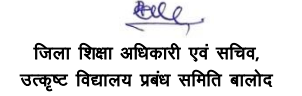 जिला शिक्षा अधिकारी एवं सचिव,
उत्कृष्ट विद्यालय प्रबंध समिति बालोद